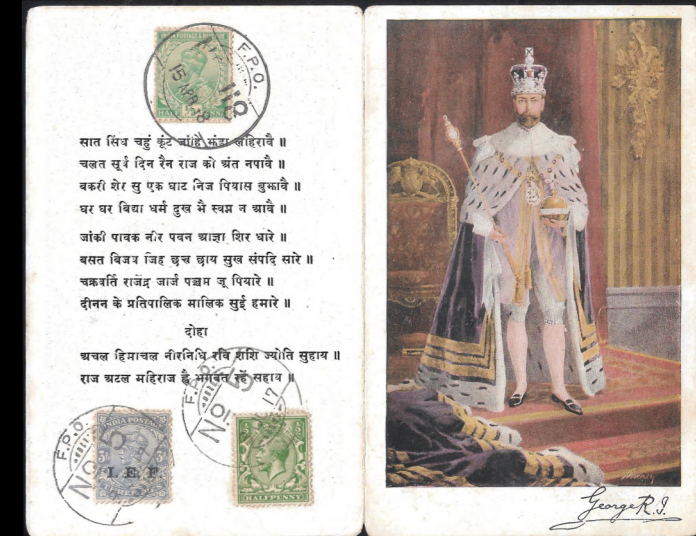 INDIA POSTAGE & REVENUE
HALF
F.P.O.
15 APR 18
सात सिंध चहुं कूंट जाहि झंडा लहिरावै ॥
चलत सूर्य दिन रैन राज को अंत नपावै ॥
बकरी शेर सु एक घाट निज पियास बुझावै ॥
घर घर बिद्या धर्म दुख भै स्वप्न न आवै ॥
जांकी पावक नीर पवन आज्ञा शिर धारे ॥
बसत बिजय जिह छत्र छाय सुख संपदि सारे ॥
चक्रवर्ति राजेंद्र जार्ज पञ्चम जू पियारे ॥
दीनन के प्रतिपालिक मालिक सुई हमारे ॥
दोहा
अचल हिमाचल नीरनिधि रवि शशि ज्योति सुहाय ॥
राज अटल महिराज है भगवत रहें सहाय ॥
F.P.O.
No
17
F.P.O.
No
INDIA POSTAGE
I. E. F.
HALFPENNY
George R.I.